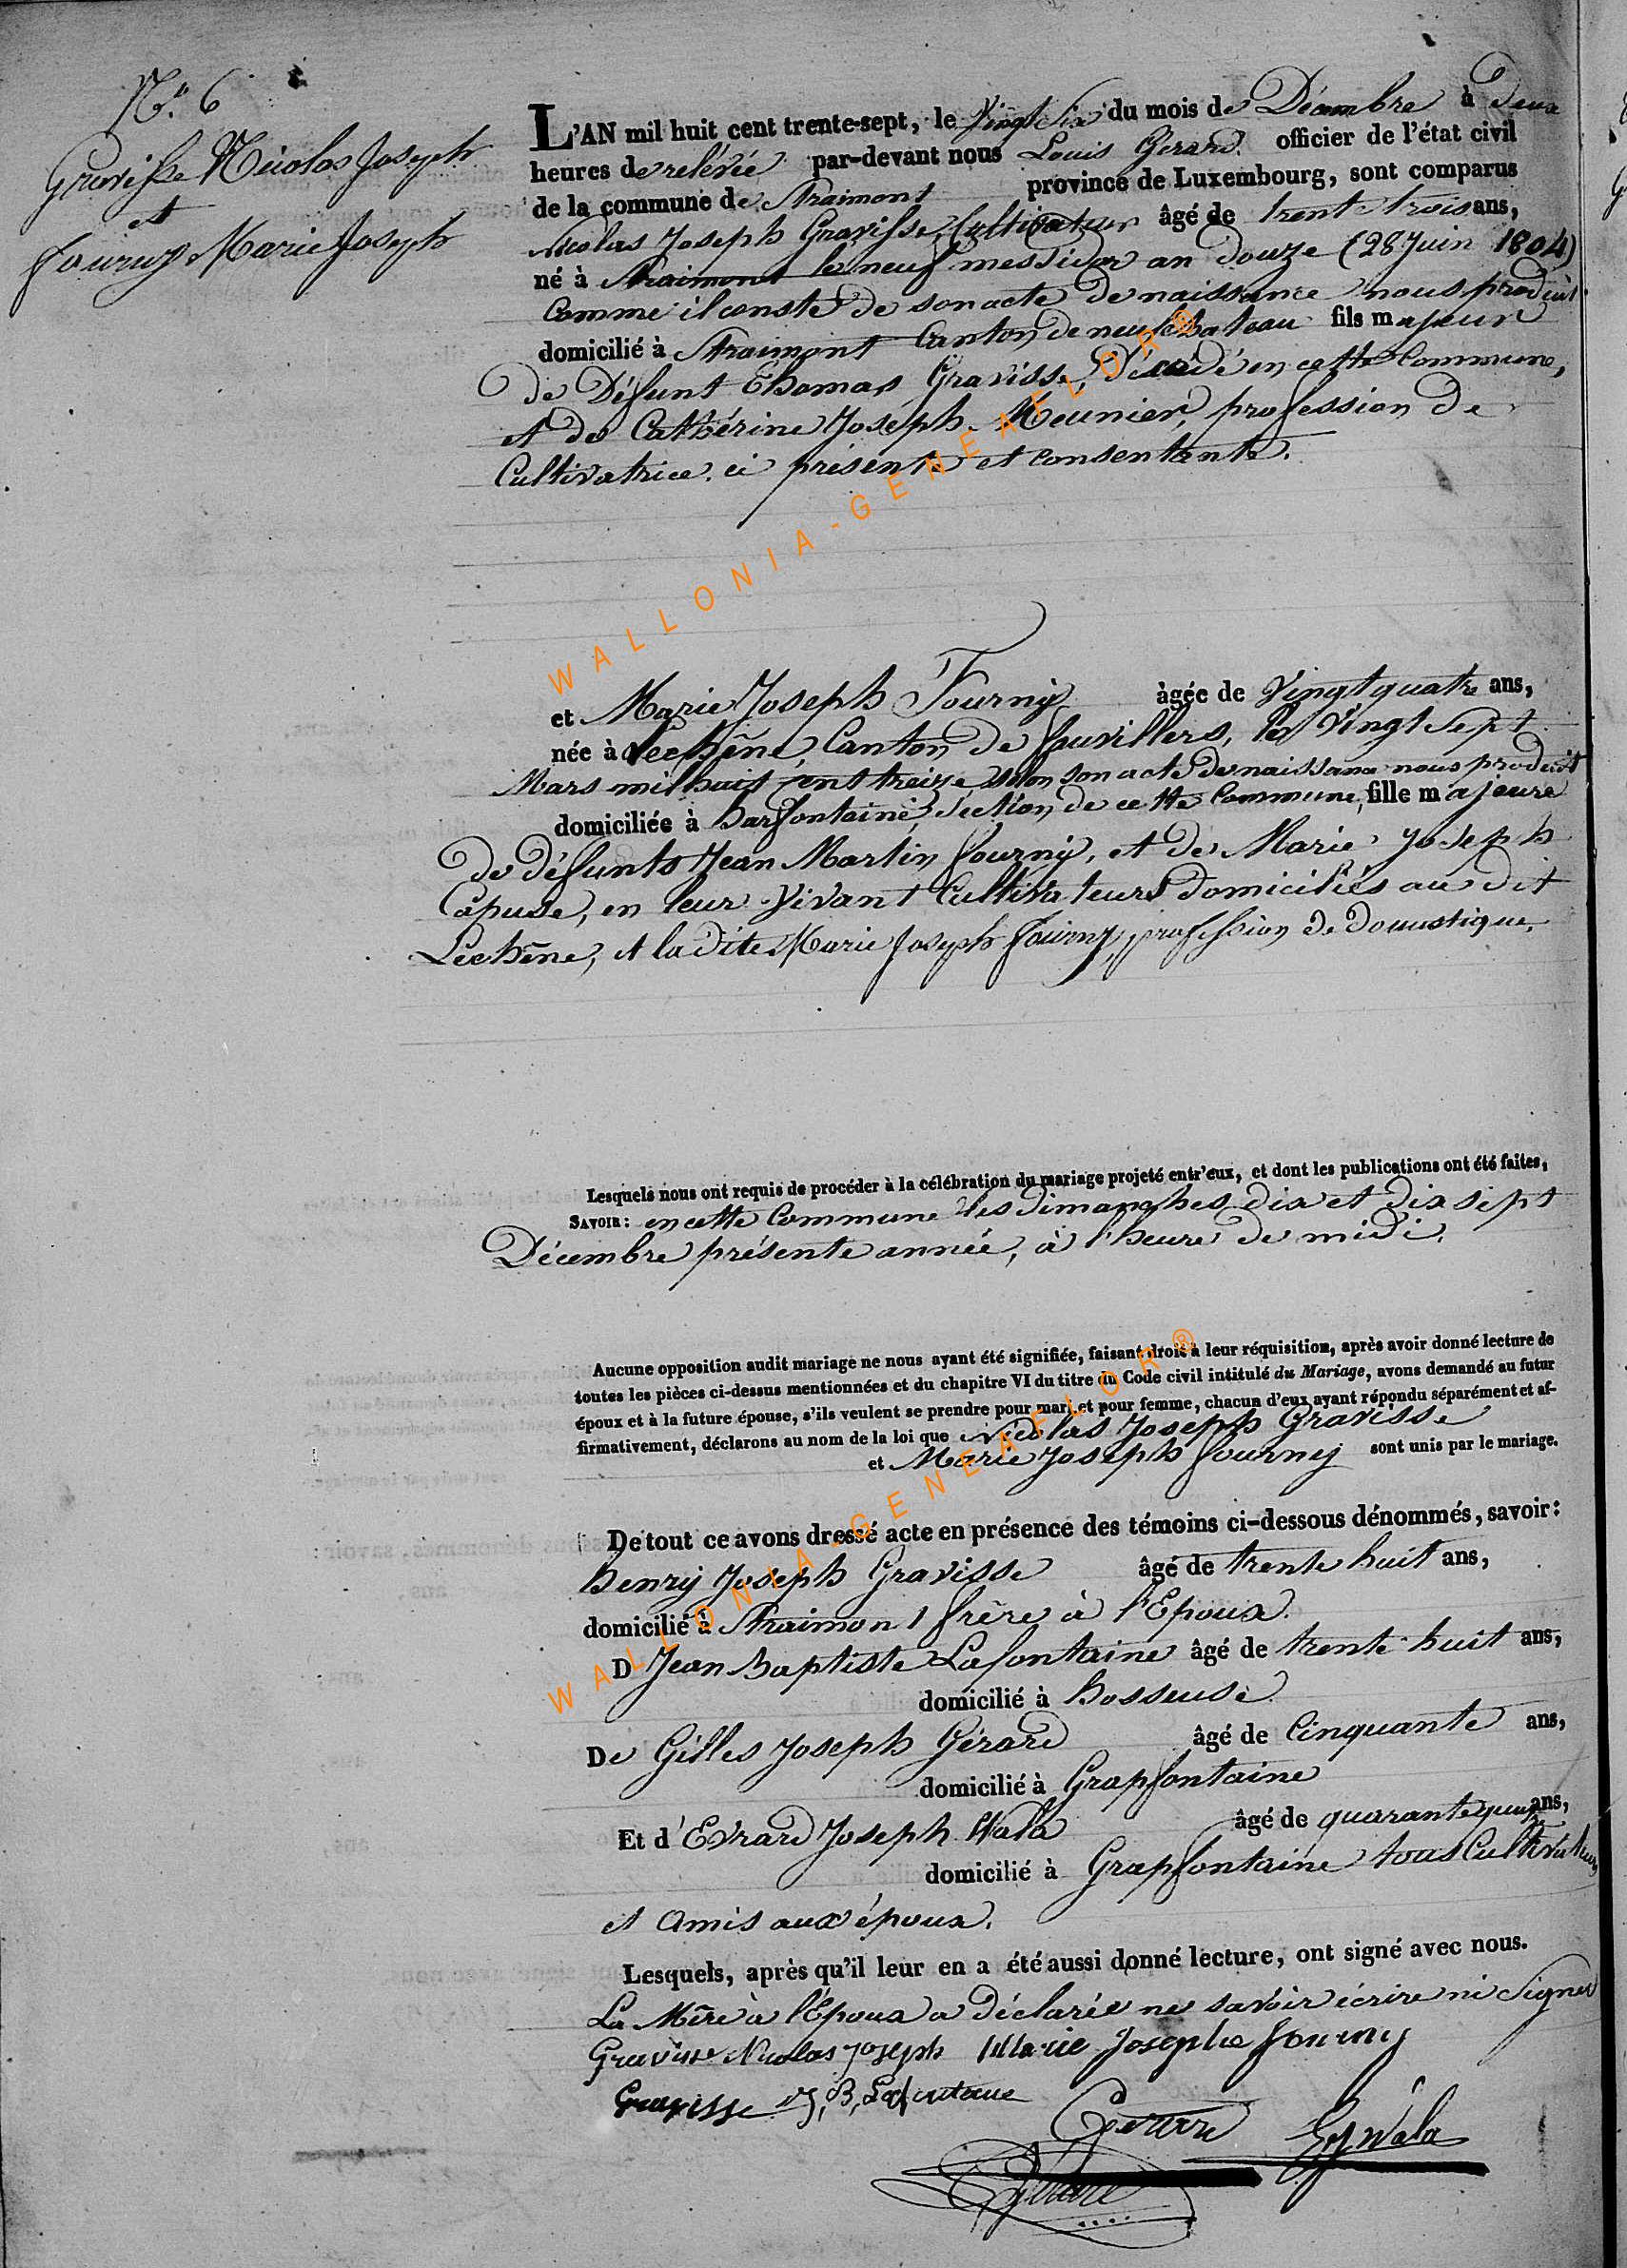 N.° 6
Gravisse Nicolas Joseph
et
Fourny Marie Joseph
L'AN mil huit cent trente-sept, le Vingt Six du mois de Décembre à deux
heures de relévée par-devant nous Louis Gerard officier de l'état civil
de la commune de Straimont province de Luxembourg, sont comparus
Nicolas Joseph Gravisse, Cultivateur âgé de trent trois ans,
né à Straimont le neuf messidor an douze (28 Juin 1804)
Comme il conste de son acte de naissance nous produit
domicilié à Straimont Canton de neufchateau fils majeur
de Défunt Thomas Gravisse, décédé en cette Commune,
et de Cathérine Joseph Meunier, profession de
Cultivatrice. ci présente et consentante.
et Marie Joseph Fourny âgée de Vingt quatre ans,
née à Lechêne, Canton de fauvillers, le Vingt Sept
Mars mil huit cent treize selon son acte de naissance nous produit
domiciliée à harfontaine, Section de cette Commune, fille majeure
de défunts Jean Martin fourny, et de Marie Joseph
Capuse, en leur Vivant Cultivateurs domiciliés au dit
Lechêne, et la dite Marie Joseph fourny, profession de domestique.
Lesquels nous ont requis de procéder à la célébration du mariage projeté entr'eux, et dont les publications ont été faites,
SAVOIR: en cette Commune les dimanches dix et dix sept
Décembre présente année, à l'heure de midi.
Aucune opposition audit mariage ne nous ayant été signifiée, faisant droit à leur réquisition, après avoir donné lecture de
toutes les pièces ci-dessus mentionnées et du chapitre VI du titre du Code civil intitulé du Mariage, avons demandé au futur
époux et à la future épouse, s'ils veulent se prendre pour mari et pour femme, chacun d'eux ayant répondu séparément et af-
firmativement, déclarons au nom de la loi que Nicolas Joseph Gravisse
et Marie Joseph fourny sont unis par le mariage.
De tout ce avons dressé acte en présence des témoins ci-dessous dénommés, savoir:
henry Joseph Gravisse âgé de trente huit ans,
domicilié à Straimont frère à l'Epoux.
D Jean Baptiste Lafontaine âgé de trente huit ans,
domicilié à hosseuse.
De Gilles Joseph Gérard âgé de Cinquante ans,
domicilié à Grapfontaine
Et d'Evrard Joseph Wala âgé de quarante ans,
domicilié à Grapfontaine tous Cultivateurs
et Amis aux époux.
Lesquels, après qu'il leur en a été aussi donné lecture, ont signé avec nous.
La Mère à l'Epoux a déclarée ne savoir écrire ni Signer
Gravisse Nicolas Joseph Marie Josephe fourny
Gravisse J, B, Lafontaine
Gerard EJ Wala
Gérard
WALLONIA-GENEAFLOR®
WALLONIA-GENEAFLOR®